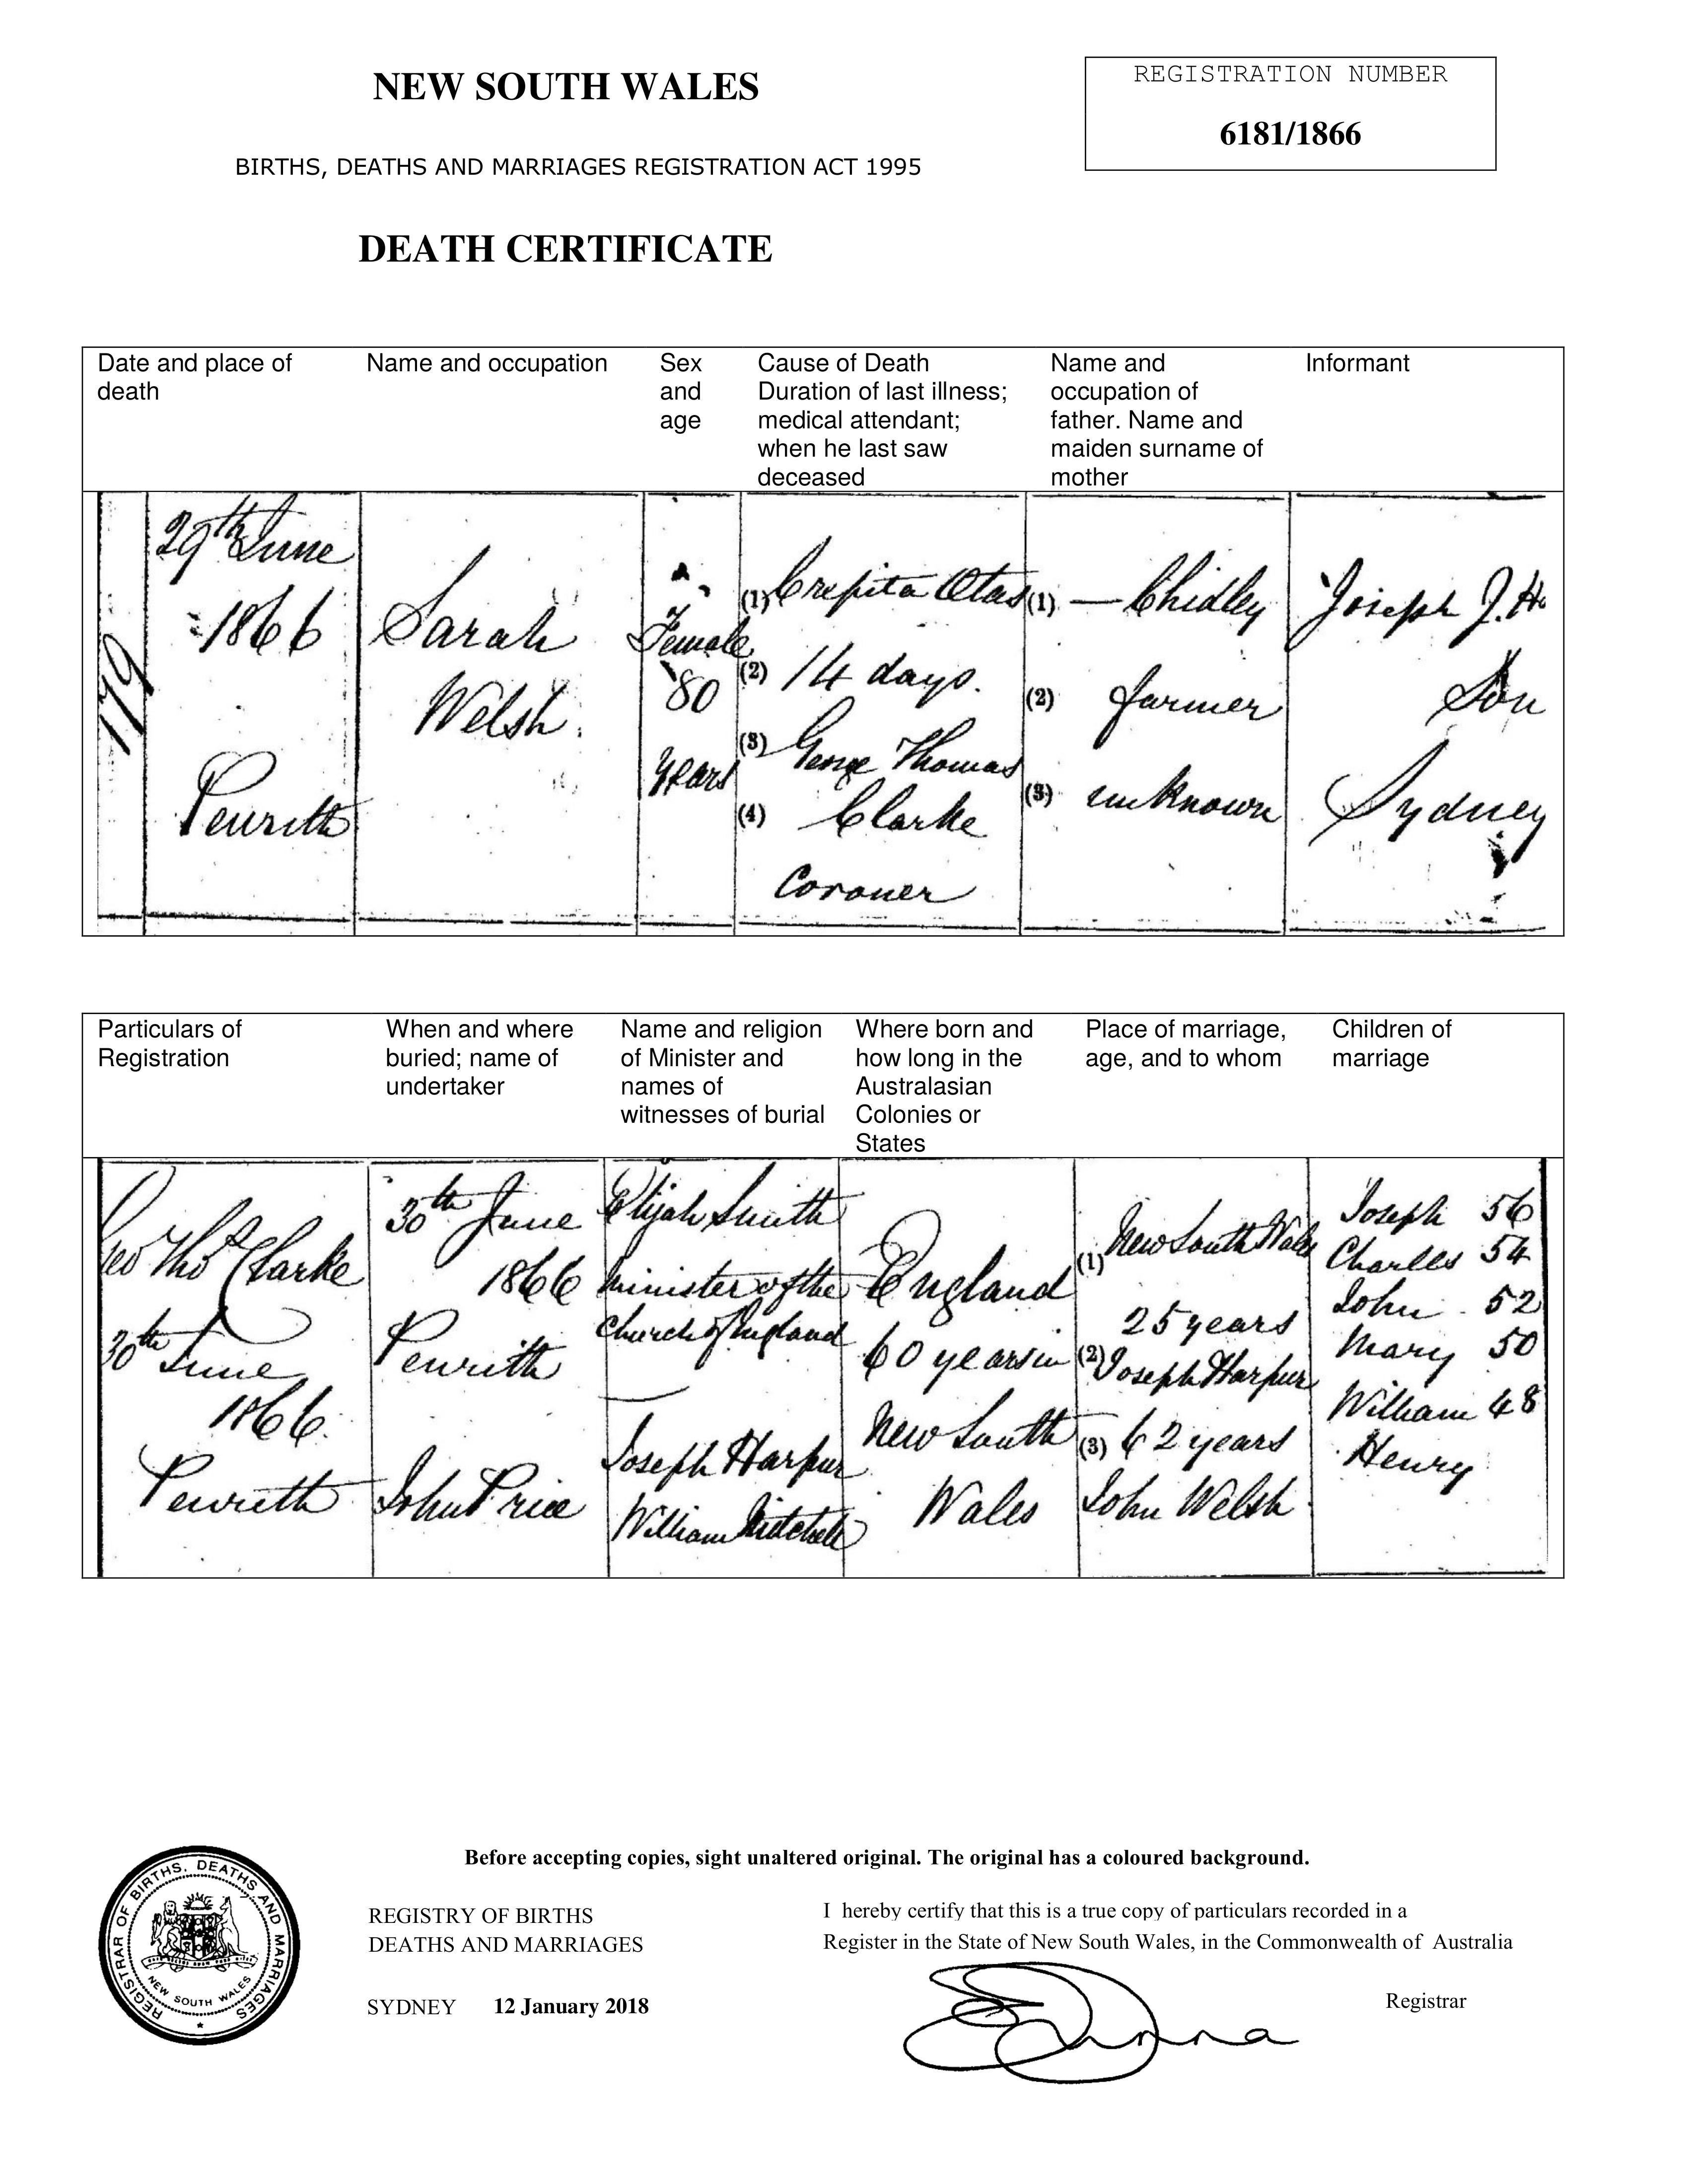 NEW SOUTH WALES
REGISTRATION NUMBER
6181/1866
BIRTHS, DEATHS AND MARRIAGES REGISTRATION ACT 1995
DEATH CERTIFICATE
Date and place of
death
Name and occupation
Sex
and
age
Cause of Death
Duration of last illness;
medical attendant;
when he last saw
deceased
Name and
occupation of
father. Name and
maiden surname of
mother
Informant
179
29th June
1866
Penrith
Sarah
Welsh
Female
80
years
(1) Crepita Otas
(2) 14 days.
(3) George Thomas
(4) Clarke
Coroner
(1) — Chidley
(2) farmer
(3) unknown
Joseph J. H
Son
Sydney
Particulars of
Registration
When and where
buried; name of
undertaker
Name and religion
of Minister and
names of
witnesses of burial
Where born and
how long in the
Australasian
Colonies or
States
Place of marriage,
age, and to whom
Children of
marriage
Geo Thos Clarke
30th June
1866
Penrith
30th June
1866
Penrith
John Price
Elijah Smith
Minister of the
Church of England
Joseph Harpur
William Mitchell
England
60 years in
New South
Wales
(1) New South Wales
25 years
(2) Joseph Harpur
(3) 62 years
John Welsh
Joseph 56
Charles 54
John 52
Mary 50
William 48
Henry
Before accepting copies, sight unaltered original. The original has a coloured background.
REGISTRAR OF BIRTHS, DEATHS AND MARRIAGES
NEW SOUTH WALES
REGISTRY OF BIRTHS
DEATHS AND MARRIAGES
SYDNEY 12 January 2018
I hereby certify that this is a true copy of particulars recorded in a
Register in the State of New South Wales, in the Commonwealth of Australia
Registrar